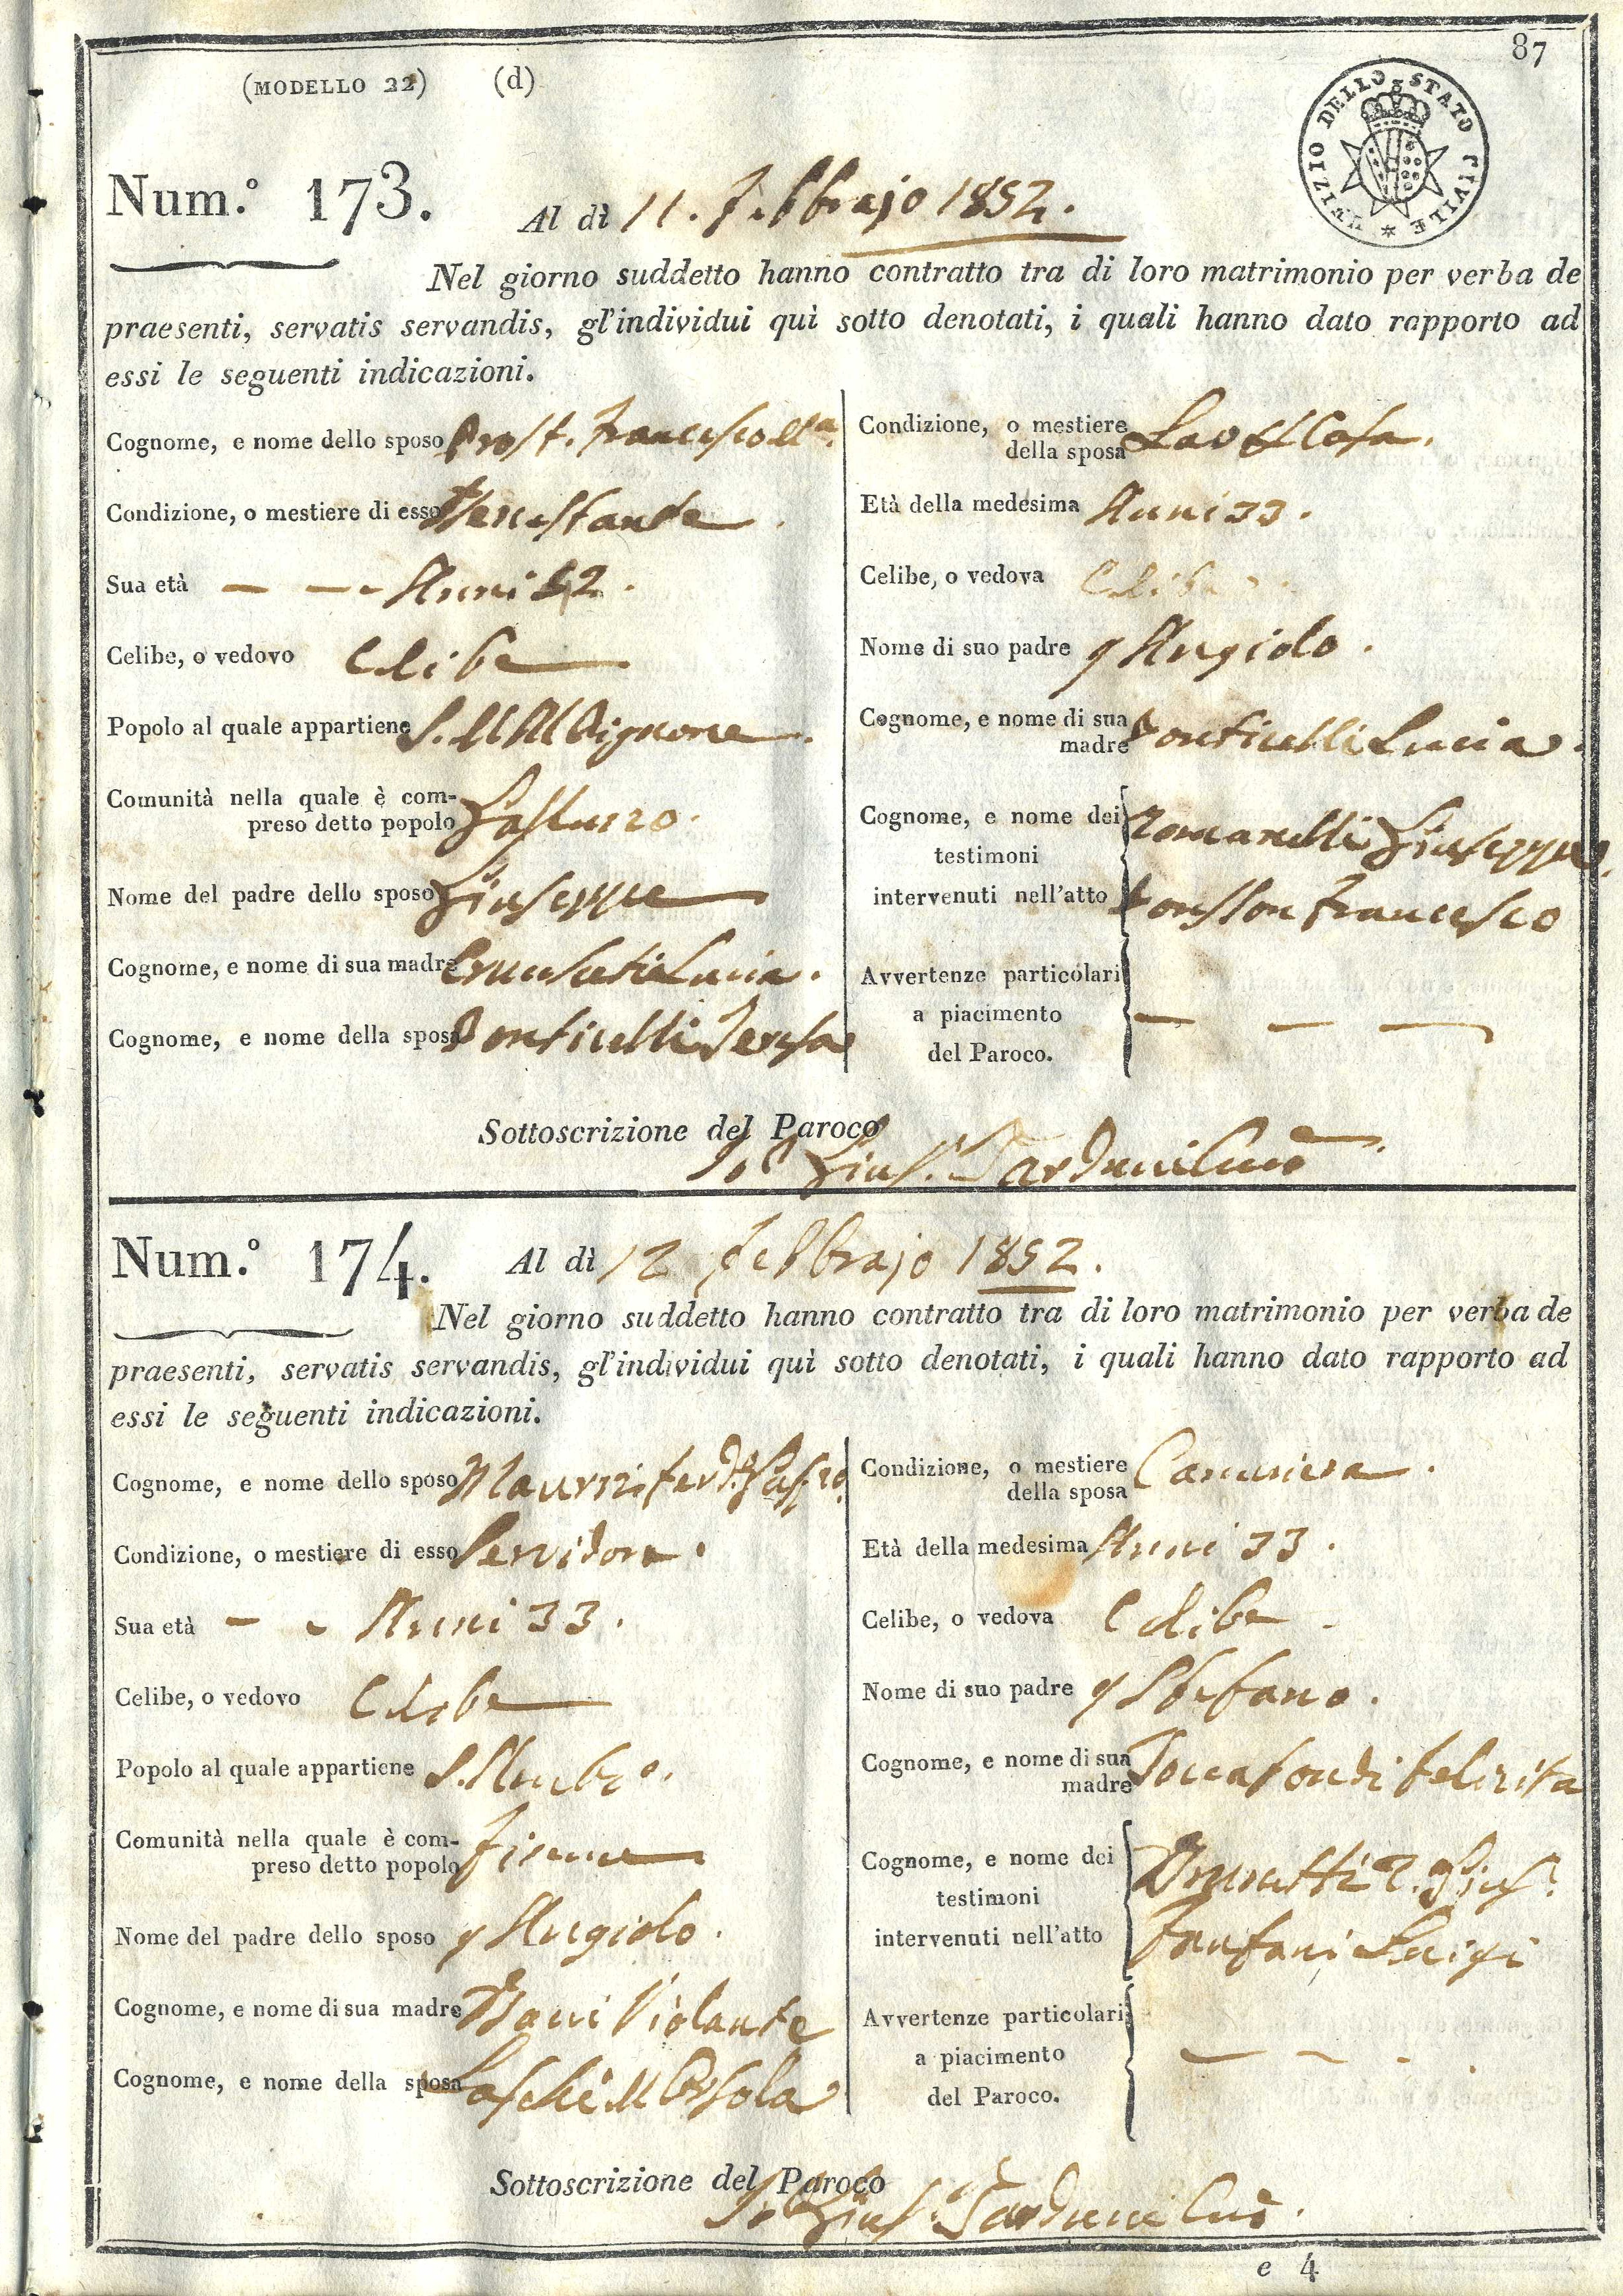 87
(MODELLO 22) (d)
UFIZIO DELLO STATO CIVILE
Num.° 173. Al dì 11. Febbrajo 1852.
Nel giorno suddetto hanno contratto tra di loro matrimonio per verba de
praesenti, servatis servandis, gl'individui quì sotto denotati, i quali hanno dato rapporto ad
essi le seguenti indicazioni.
Cognome, e nome dello sposo Francesco
Condizione, o mestiere di esso Benestante
Sua età — — - Anni 52.
Celibe, o vedovo Celibe
Popolo al quale appartiene S. M
Comunità nella quale è com-
preso detto popolo Galluzzo.
Nome del padre dello sposo Giuseppe
Cognome, e nome di sua madre Lucia.
Cognome, e nome della sposa Ponticelli Teresa
Condizione, o mestiere
della sposa Casa.
Età della medesima Anni 33.
Celibe, o vedova Celibe
Nome di suo padre q Angiolo.
Cognome, e nome di sua
madre Ponticelli Lucia.
Cognome, e nome dei Romanelli Giuseppe
testimoni
intervenuti nell'atto Francesco
Avvertenze particolari
a piacimento — — —
del Paroco.
Sottoscrizione del Paroco
Gius.
Num.° 174. Al dì 12 Febbrajo 1852.
Nel giorno suddetto hanno contratto tra di loro matrimonio per verba de
praesenti, servatis servandis, gl'individui quì sotto denotati, i quali hanno dato rapporto ad
essi le seguenti indicazioni.
Cognome, e nome dello sposo
Condizione, o mestiere di esso Servidore.
Sua età - - Anni 33.
Celibe, o vedovo Celibe
Popolo al quale appartiene S.
Comunità nella quale è com-
preso detto popolo Firenze
Nome del padre dello sposo q Angiolo.
Cognome, e nome di sua madre Violante
Cognome, e nome della sposa Laschi M Orsola
Condizione, o mestiere
della sposa Cameriera.
Età della medesima Anni 33.
Celibe, o vedova Celibe
Nome di suo padre q Stefano.
Cognome, e nome di sua
madre Toccafondi Felicita
Cognome, e nome dei Gius.
testimoni
intervenuti nell'atto Fanfani Luigi
Avvertenze particolari
a piacimento — - - .
del Paroco.
Sottoscrizione del Paroco
Gius.
e 4